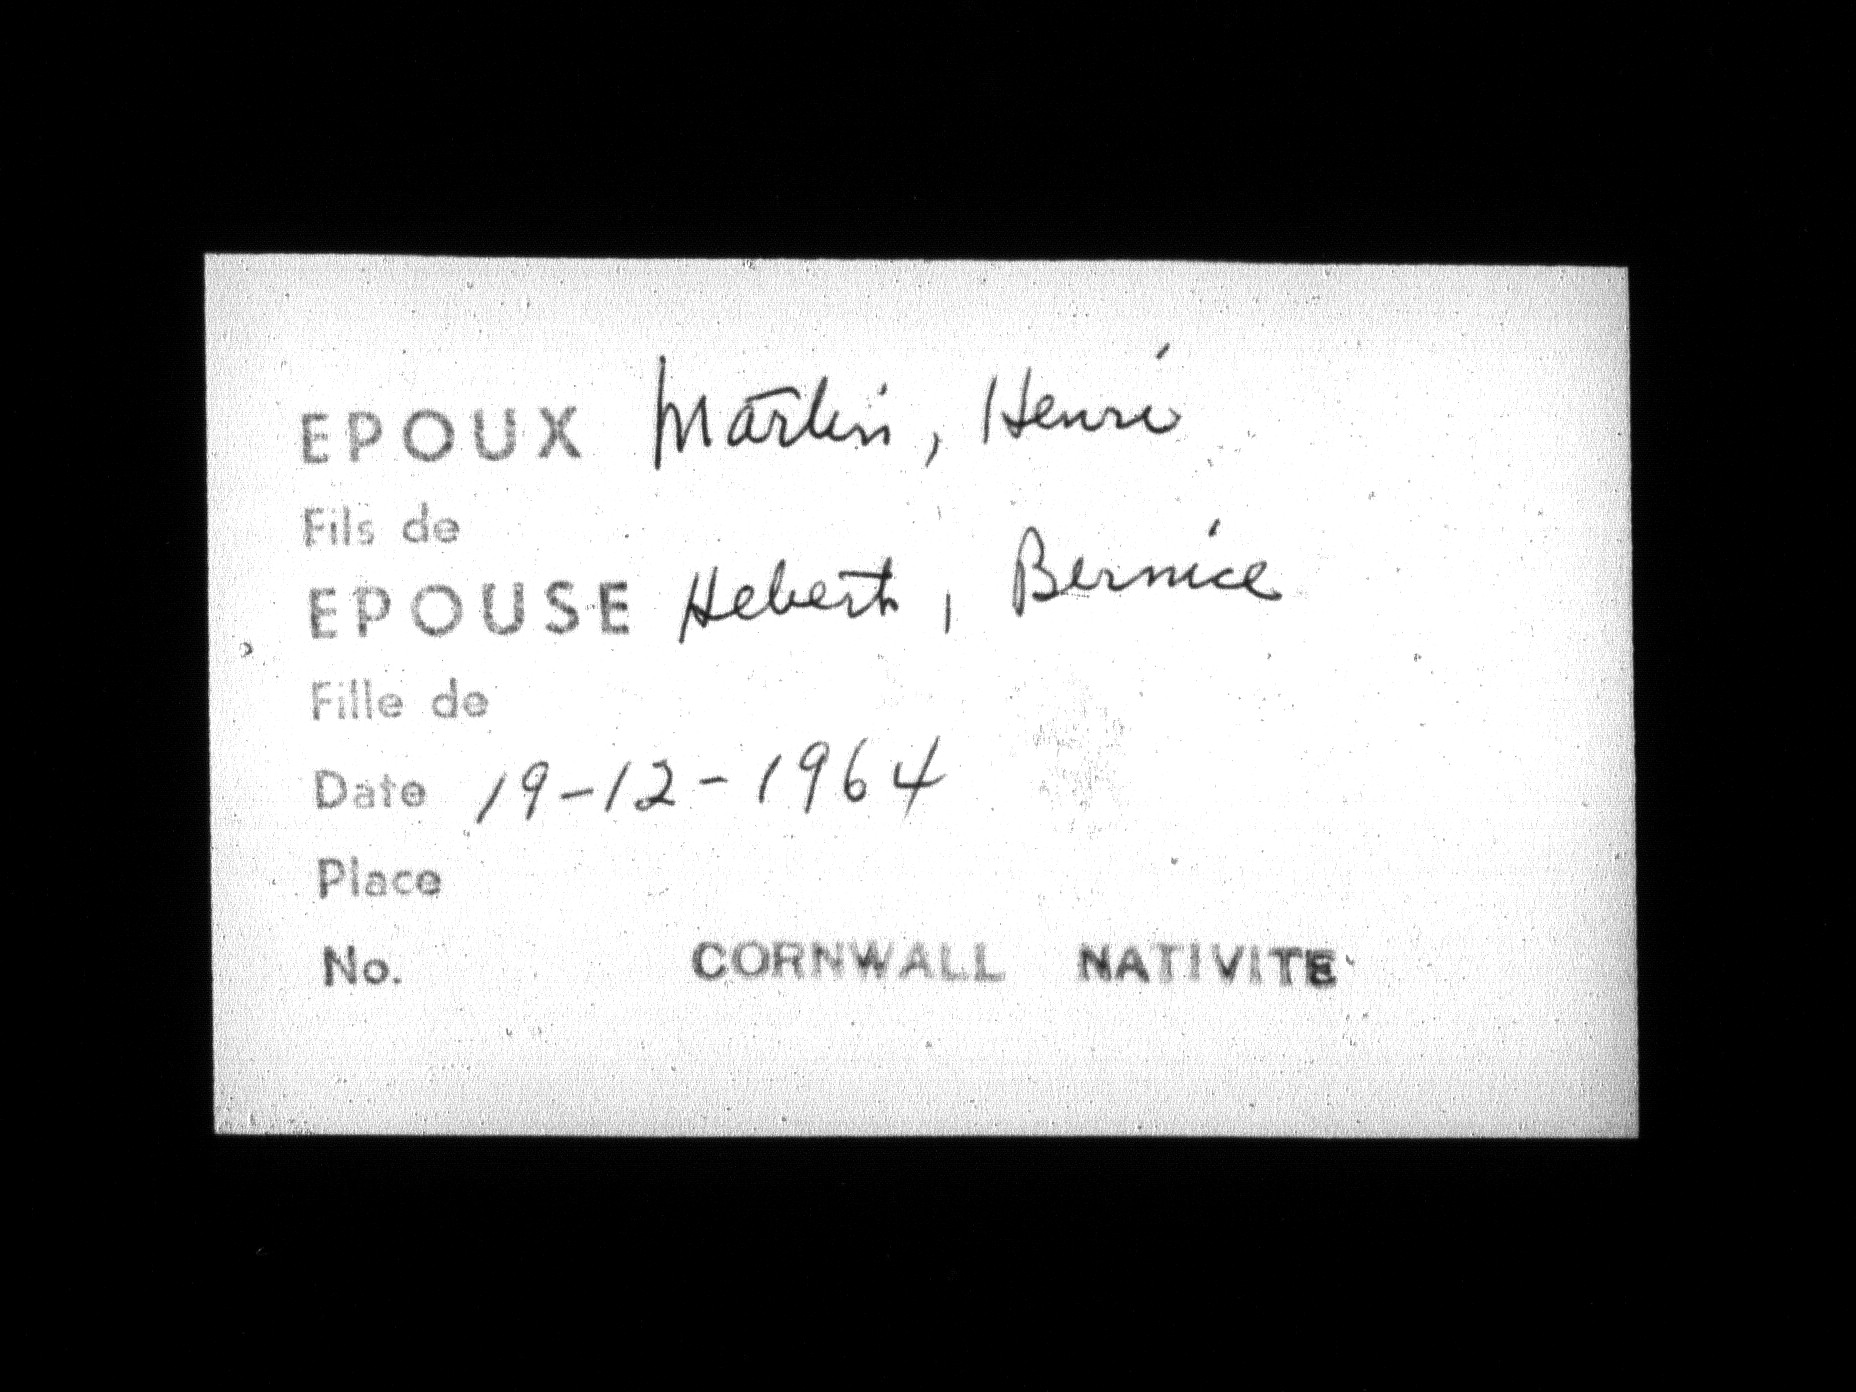 EPOUX Martin, Henri
Fils de
EPOUSE Hebert, Bernice
Fille de
Date 19-12-1964
Place
No. CORNWALL NATIVITE